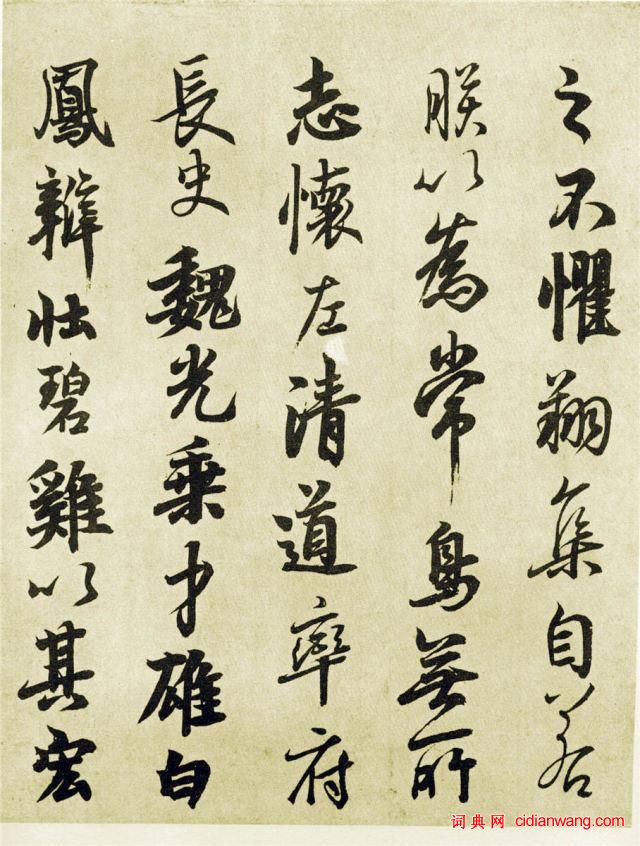 之不懼翔集自若
朕以為常鳥無所
志懷左清道率府
長史魏光乗才雄白
鳳辯壮碧雞以其宏
词典网 cidianwang.com